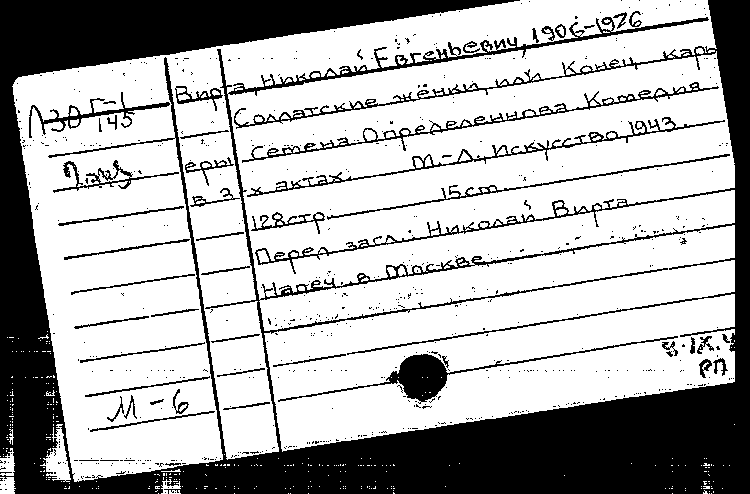 Л30 Г-1
145
Вирта, Николай Евгеньевич, 1906-1976
Солдатские жёнки, или Конец карь
еры Семена Определеннова. Комедия
в 2-х актах. М.-Л., Искусство, 1943.
128стр. 15см.
Перед загл.: Николай Вирта
Напеч. в Москве
М-6
8.IX.4
РП